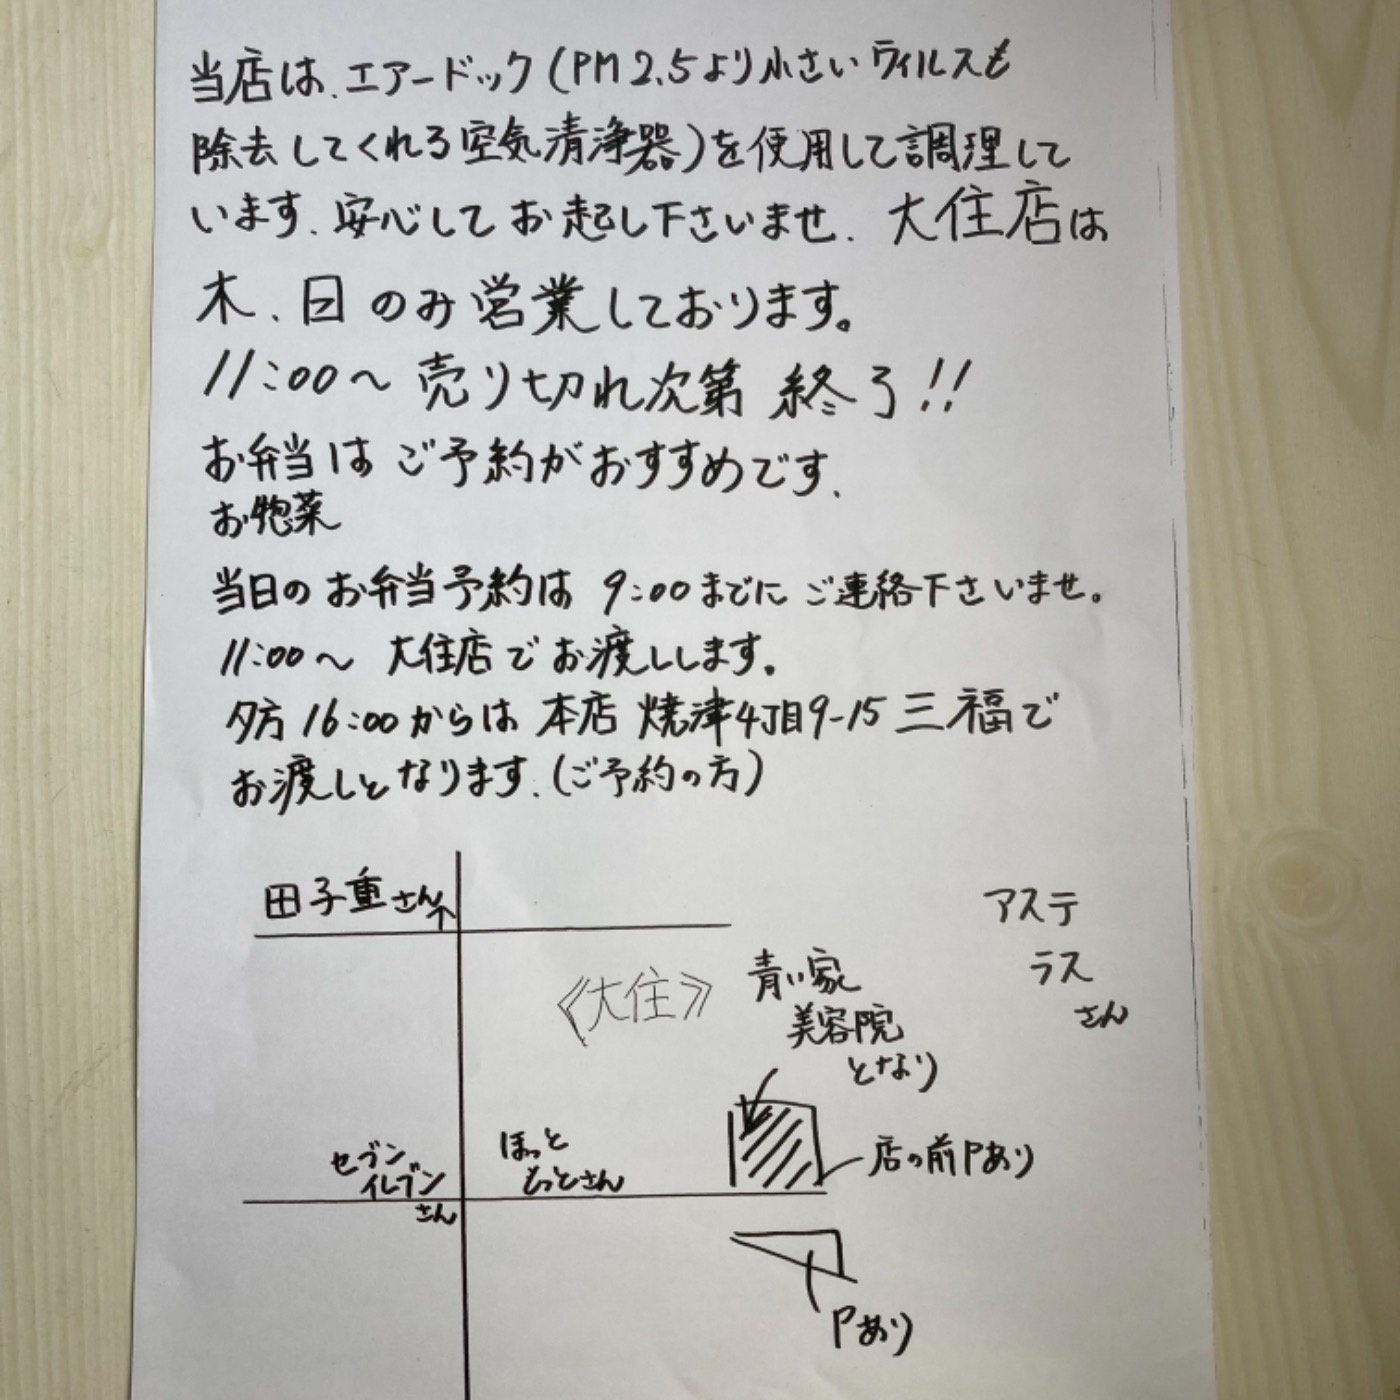 当店は、エアードック(PM2.5より小さいウィルスも
除去してくれる空気清浄器)を使用して調理して
います。安心してお起し下さいませ。大住店は
木、日のみ営業しております。
11:00〜売り切れ次第 終了!!
お弁当はご予約がおすすめです。
お惣菜
当日のお弁当予約は 9:00までにご連絡下さいませ。
11:00〜 大住店でお渡しします。
夕方16:00からは 本店 焼津4丁目9-15 三福で
お渡しとなります。(ご予約の方)
田子重さん↑
アステ
ラス
さん
《大住》
青い家
美容院
となり
セブン
イレブン
さん
ほっと
もっとさん
店の前Pあり
Pあり